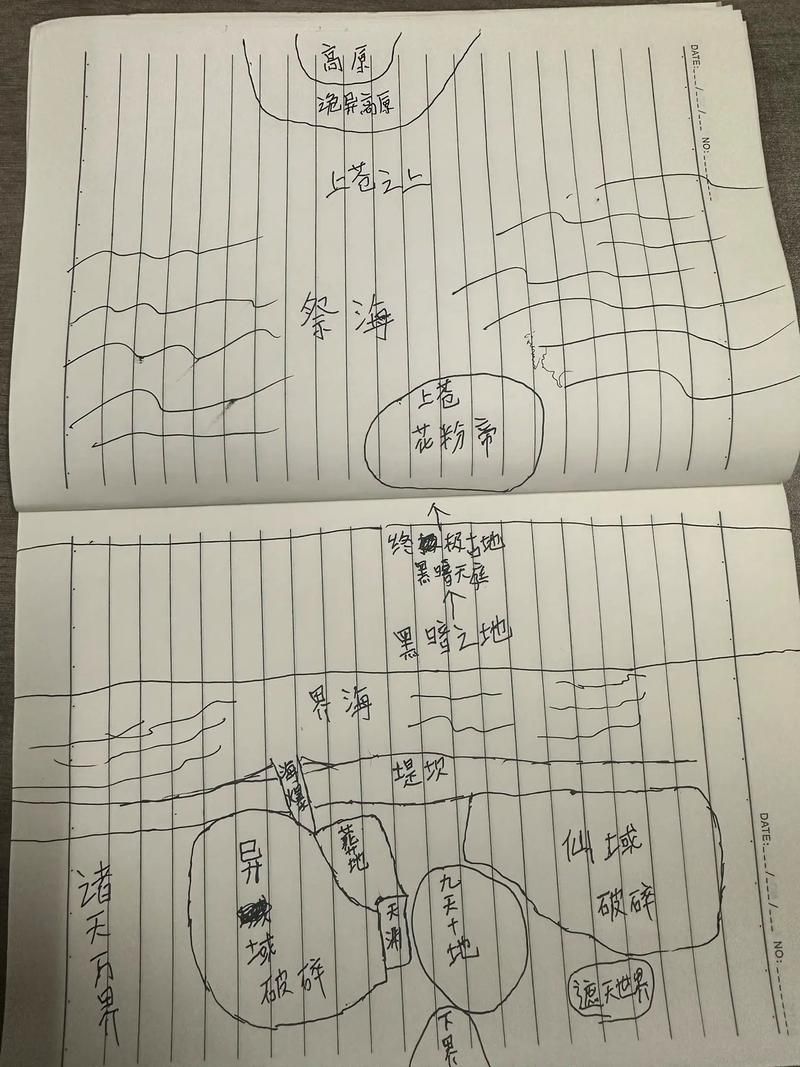 高原
诡异高原
DATE: NO:
上苍之上
祭海
上苍
花粉帝
终极古地
黑暗天庭
黑暗之地
界海
海爆
堤坝
葬地
异域破碎
天渊
九天十地
仙域
破碎
遮天世界
下界
诸天万界
DATE: NO: